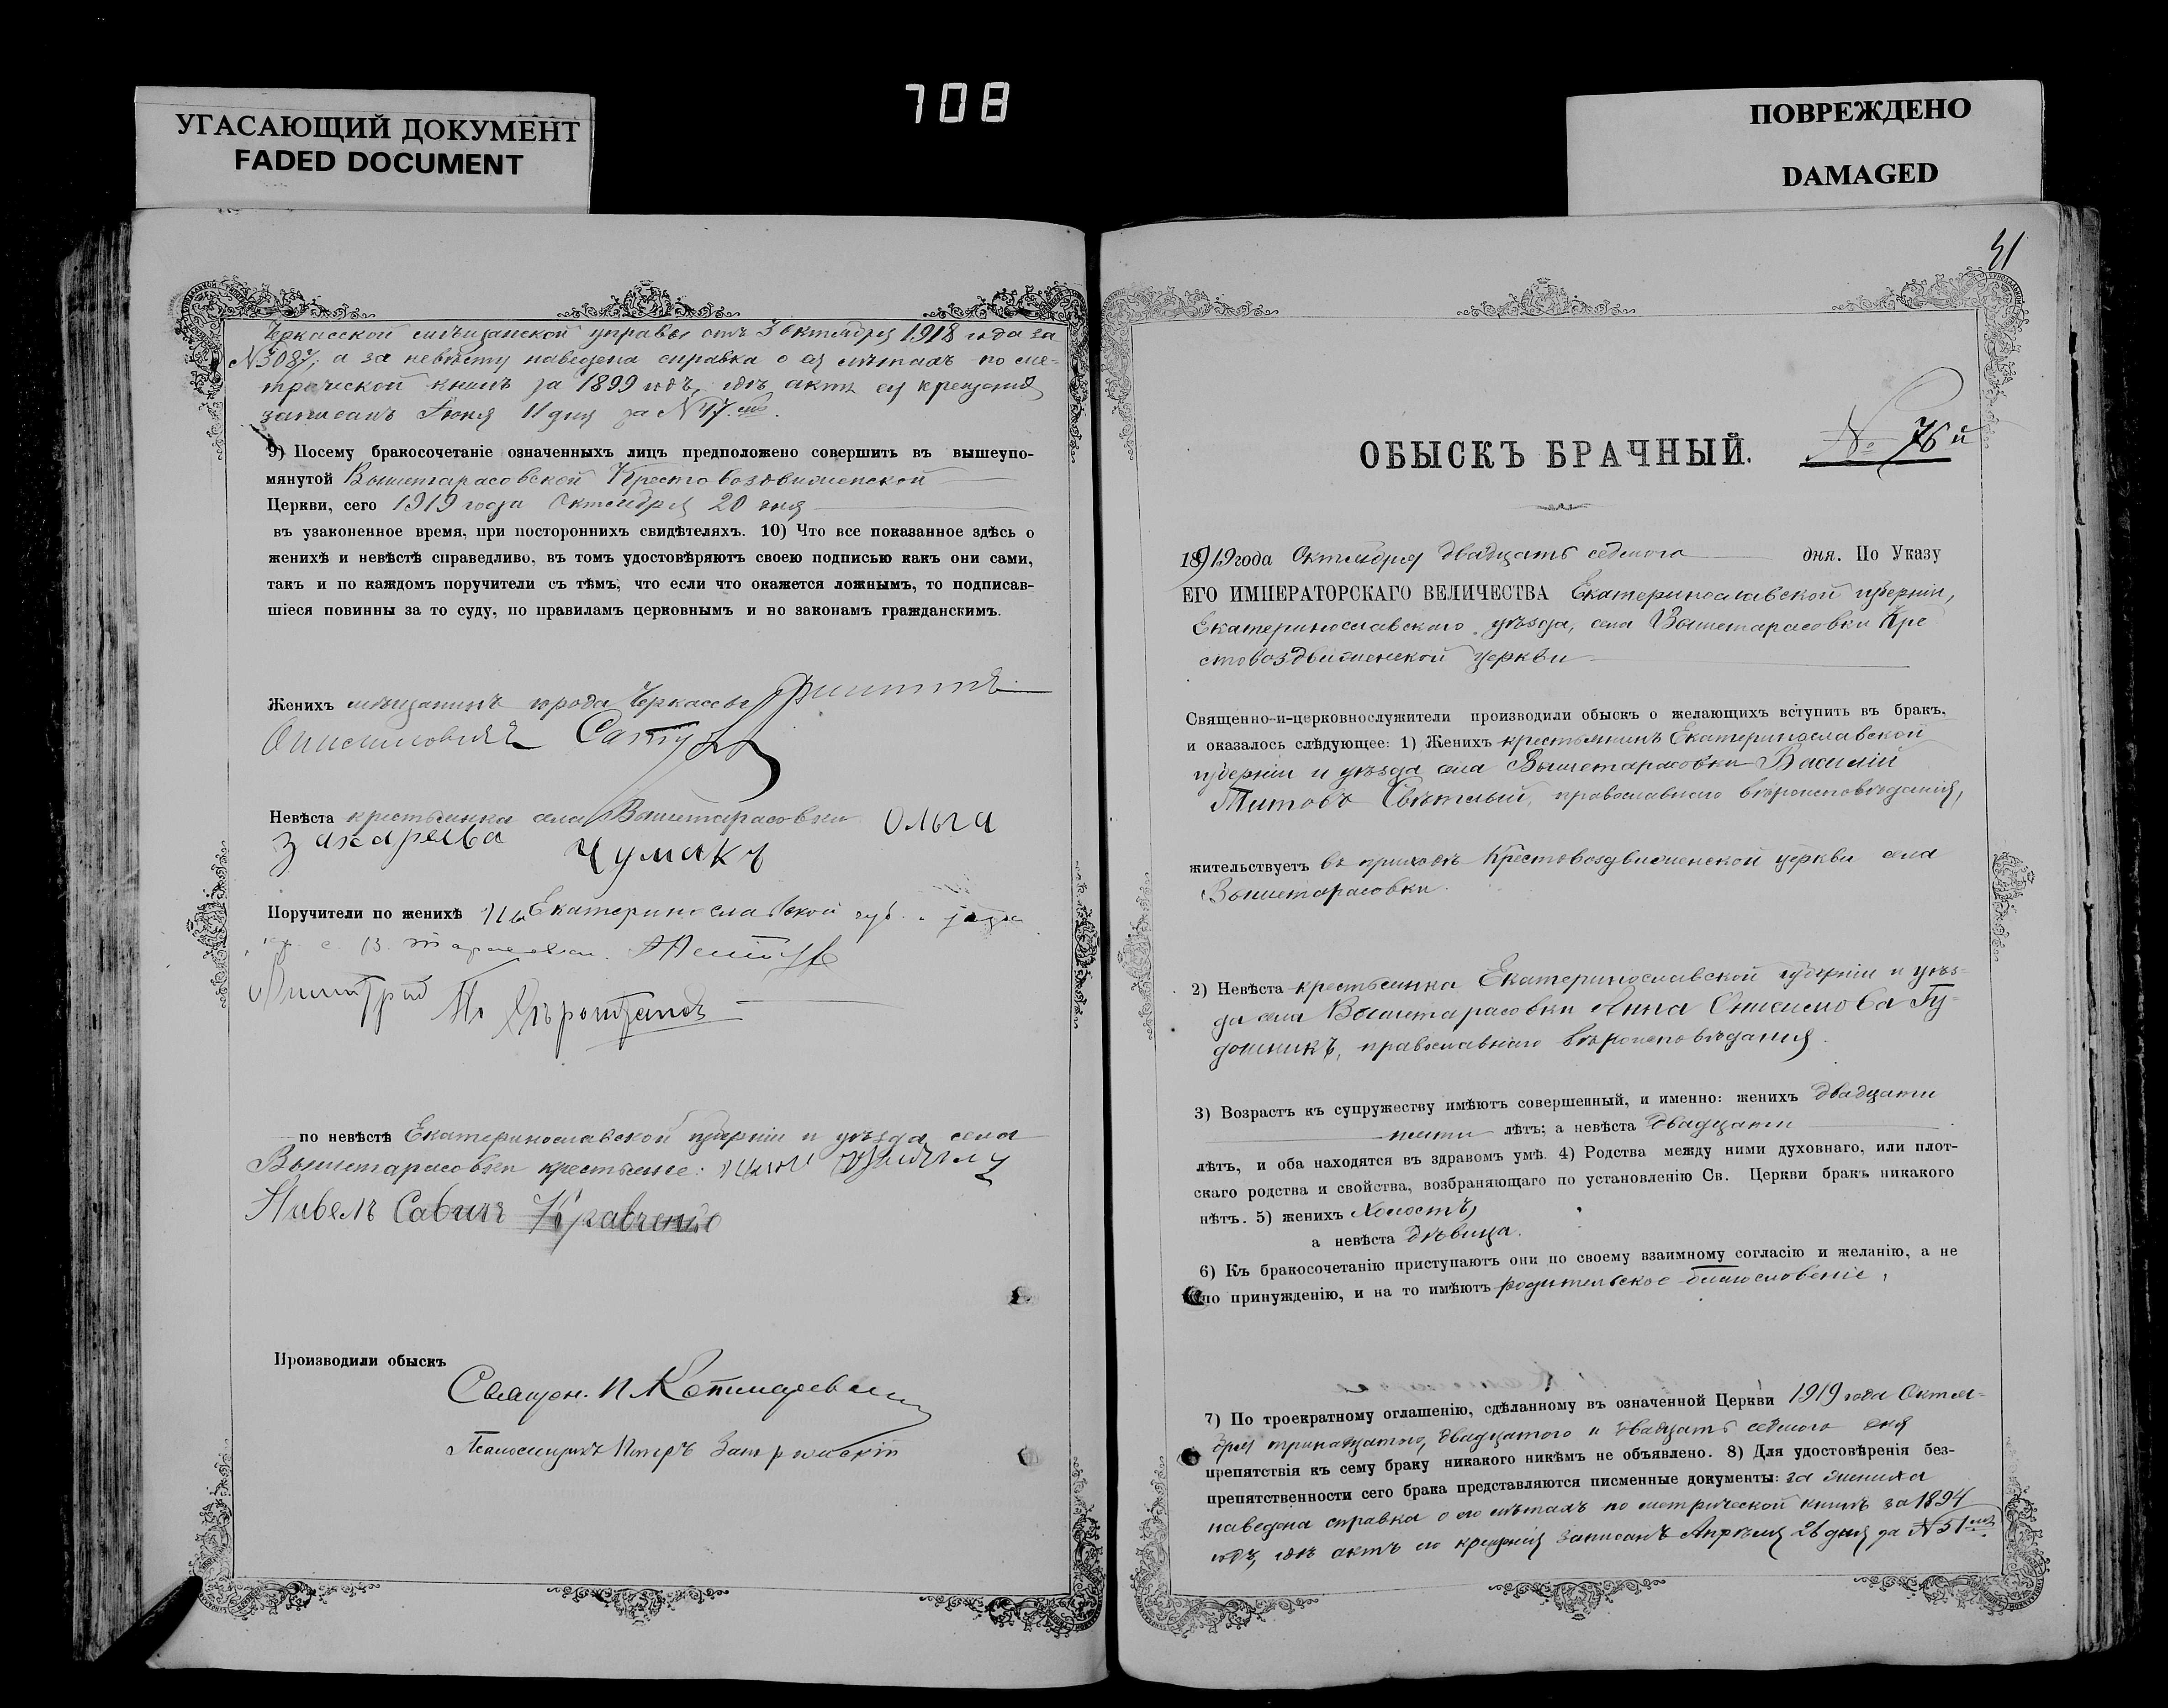 708
УГАСАЮЩИЙ ДОКУМЕНТ
FADED DOCUMENT
ПОВРЕЖДЕНО
DAMAGED
Черкасской мѣщанской управы отъ 3 Октября 1918 года за
№3087; а за невѣсту наведена справка о ея лѣтахъ по ме-
трической книгѣ за 1899 годъ, гдѣ актъ ея крещенія
записанъ Іюня 11 дня за № 47.
9) Посему бракосочетаніе означенныхъ лицъ предположено совершить въ вышеупо-
мянутой Вышетарасовской Крестовоздвиженской
Церкви, сего 1919 года Октября 20 дня
въ узаконенное время, при постороннихъ свидѣтеляхъ. 10) Что все показанное здѣсь о
женихѣ и невѣстѣ справедливо, въ томъ удостовѣряютъ своею подписью какъ они сами,
такъ и по каждомъ поручители съ тѣмъ, что если что окажется ложнымъ, то подписав-
шіеся повинны за то суду, по правиламъ церковнымъ и по законамъ гражданскимъ.
Женихъ мѣщанинъ города Черкассы Филиппъ
Невѣста крестьянка села Вышетарасовки Ольга
Захарева Чумакъ
Поручители по женихѣ Екатеринославской губ.
Димитрій
по невѣстѣ Екатеринославской губерніи и уѣзда села
Вышетарасовки крестьяне:
Павелъ Савинъ Кравченко
Производили обыскъ
Священ. И.
Псаломщикъ Петръ
51
ОБЫСКЪ БРАЧНЫЙ. № 76й
1919 года Октября двадцать седьмого дня. По Указу
ЕГО ИМПЕРАТОРСКАГО ВЕЛИЧЕСТВА Екатеринославской губерніи,
Екатеринославскаго уѣзда, села Вышетарасовки Кре
стовоздвиженской церкви
Священно-и-церковнослужители производили обыскъ о желающихъ вступить въ бракъ,
и оказалось слѣдующее: 1) Женихъ крестьянинъ Екатеринославской
губерніи и уѣзда села Вышетарасовки Василій
Титовъ Свѣтлый, православнаго вѣроисповѣданія,
жительствуетъ въ приходѣ Крестовоздвиженской церкви села
Вышетарасовки.
2) Невѣста крестьянка Екатеринославской губерніи и уѣз-
да села Вышетарасовки Анна Онисимова Гу-
православнаго вѣроисповѣданія.
3) Возрастъ къ супружеству имѣютъ совершенный, и именно: женихъ двадцати
пяти лѣтъ; а невѣста двадцати
лѣтъ, и оба находятся въ здравомъ умѣ. 4) Родства между ними духовнаго, или плот-
скаго родства и свойства, возбраняющаго по установленію Св. Церкви бракъ никакого
нѣтъ. 5) женихъ холостъ,
а невѣста дѣвица.
6) Къ бракосочетанію приступаютъ они по своему взаимному согласію и желанію, а не
по принужденію, и на то имѣютъ родительское благословеніе,
7) По троекратному оглашенію, сдѣланному въ означенной Церкви 1919 года Октя-
бря тринадцатаго, двадцатого и двадцать седьмого дня
препятствія къ сему браку никакого никѣмъ не объявлено. 8) Для удостовѣренія без-
препятственности сего брака представляются писменные документы: за жениха
наведена справка о его лѣтахъ по метрической книгѣ за 1894
годъ, гдѣ актъ его крещенія записанъ Апрѣля 26 дня за № 51